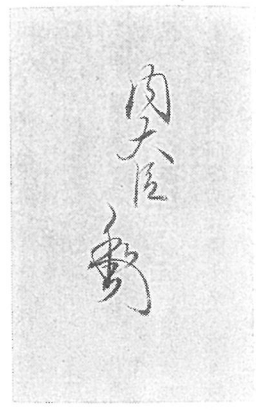 内大臣